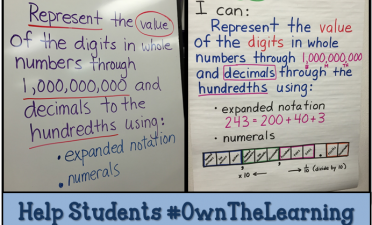 Represent the value
of the digits in whole
numbers through
1,000,000,000 and
decimals to the
hundredths using:
• expanded notation
• numerals
I can:
Represent the value
of the digits in whole
numbers through 1,000,000,000
and decimals through the
hundredths using:
• expanded notation
243 = 200 + 40 + 3
• numerals
x 10 ← → 1/10 (divide by 10)
Help Students #OwnTheLearning